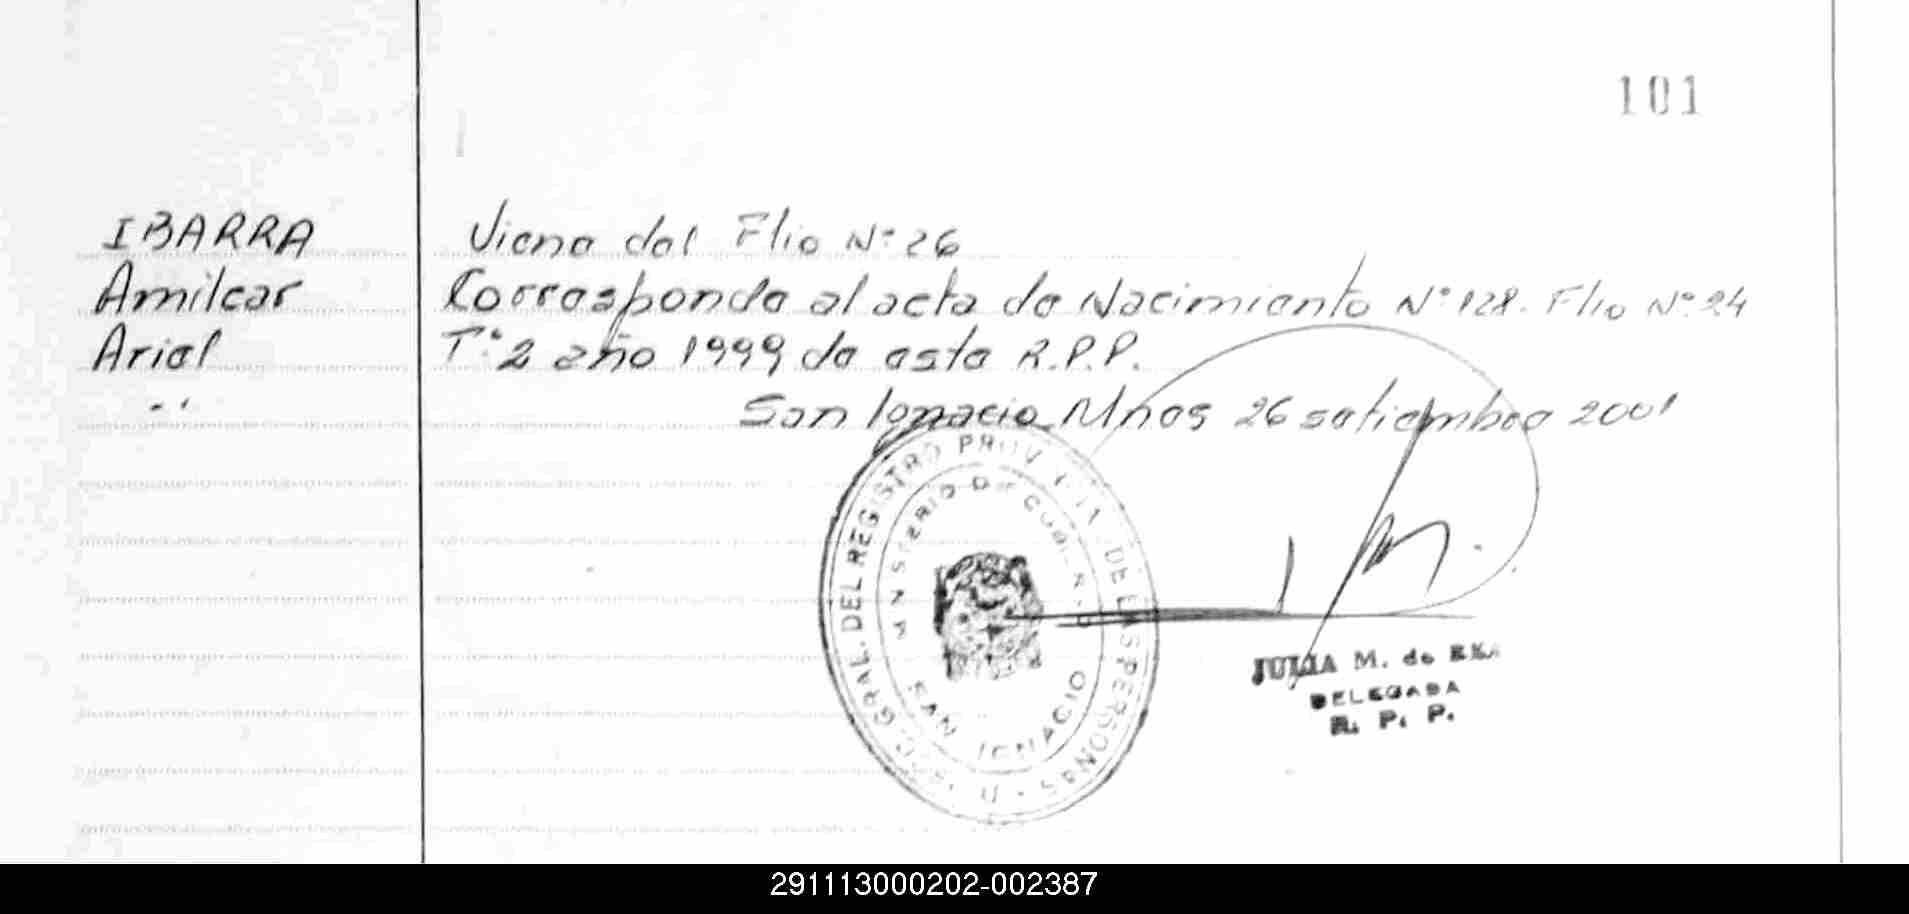 101
IBARRA
Amilcar
Ariel
Viene del Flio Nº 26
Corresponde al acta de Nacimiento Nº 128. Flio Nº 24
Tº 2 año 1999 de esta R.P.P.
San Ignacio Mnes 26 setiembre 2001
GRAL. DEL REGISTRO PROV. DE LAS PERSONAS
MINISTERIO DE GOBIERNO
SAN IGNACIO
JULIA M. de
DELEGADA
R. P. P.
291113000202-002387